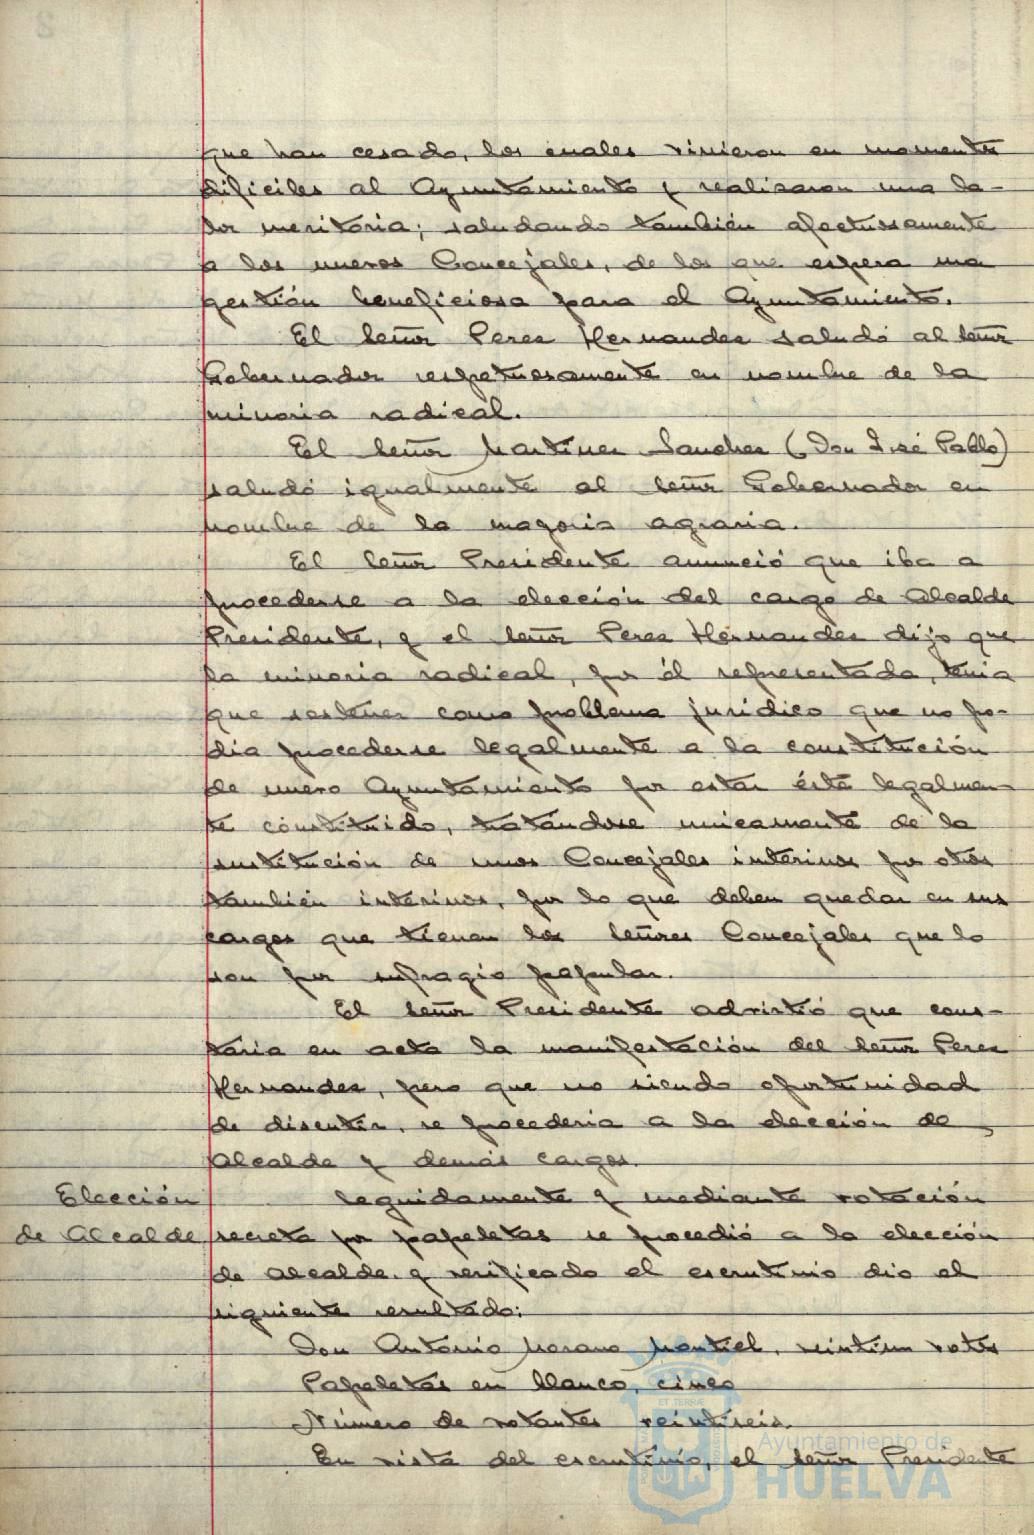 que han cesado, los cuales vinieron en momentos
dificiles al Ayuntamiento y realizaron una la-
bor meritoria; saludando también afectuosamente
a los nuevos Concejales, de los que espera una
gestión beneficiosa para el Ayuntamiento.
El señor Perez Hernandez saludó al señor
Gobernador respetuosamente en nombre de la
minoria radical.
El señor Martinez Sanchez (Don José Pablo)
saludó igualmente al señor Gobernador en
nombre de la mayoria agraria.
El señor Presidente anunció que iba a
procederse a la elección del cargo de Alcalde
Presidente, y el señor Perez Hernandez dijo que
la minoria radical, por él representada, tenia
que sostener como problema juridico que no po-
dia procederse legalmente a la constitución
de nuevo Ayuntamiento por estar éste legalmen-
te constituido, tratándose unicamente de la
sustitución de unos Concejales interinos por otros
también interinos, por lo que deben quedar en sus
cargos que tienen los señores Concejales que lo
son por sufragio popular.
El señor Presidente advirtió que cons-
taria en acta la manifestación del señor Perez
Hernandez, pero que no siendo oportunidad
de discutir, se procederia a la elección de
Alcalde y demás cargos.
Elección
de Alcalde
Seguidamente y mediante votación
secreta por papeletas se procedió a la elección
de Alcalde, y verificado el escrutinio dio el
siguiente resultado:
Don Antonio Moreno Montiel, veintiun votos
Papeletas en blanco, cinco
Número de votantes veintiseis.
En vista del escrutinio, el señor Presidente
Ayuntamiento de
HUELVA